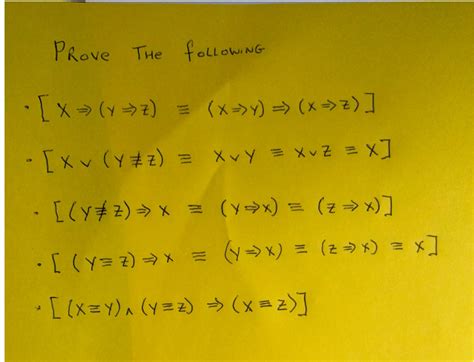 PROVE THE FOLLOWING
· [ X ⇒ (Y ⇒ Z) ≡ (X ⇒ Y) ⇒ (X ⇒ Z) ]
· [ X ∨ (Y ≢ Z) ≡ X ∨ Y ≡ X ∨ Z ≡ X ]
· [ (Y ≢ Z) ⇒ X ≡ (Y ⇒ X) ≡ (Z ⇒ X) ]
· [ (Y ≡ Z) ⇒ X ≡ (Y ⇒ X) ≡ (Z ⇒ X) ≡ X ]
· [ (X ≡ Y) ∧ (Y ≡ Z) ⇒ (X ≡ Z) ]